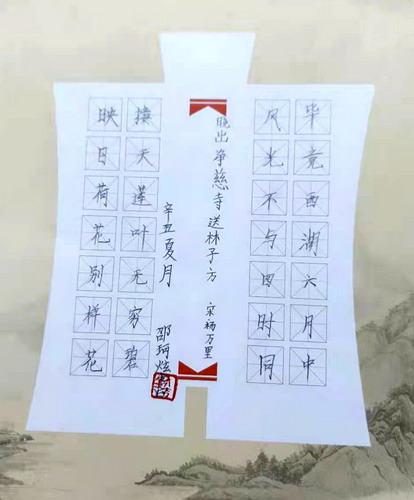 毕竟西湖六月中
风光不与四时同
晓出净慈寺送林子方 宋杨万里
辛丑夏月 邵珂炫
接天莲叶无穷碧
映日荷花别样花